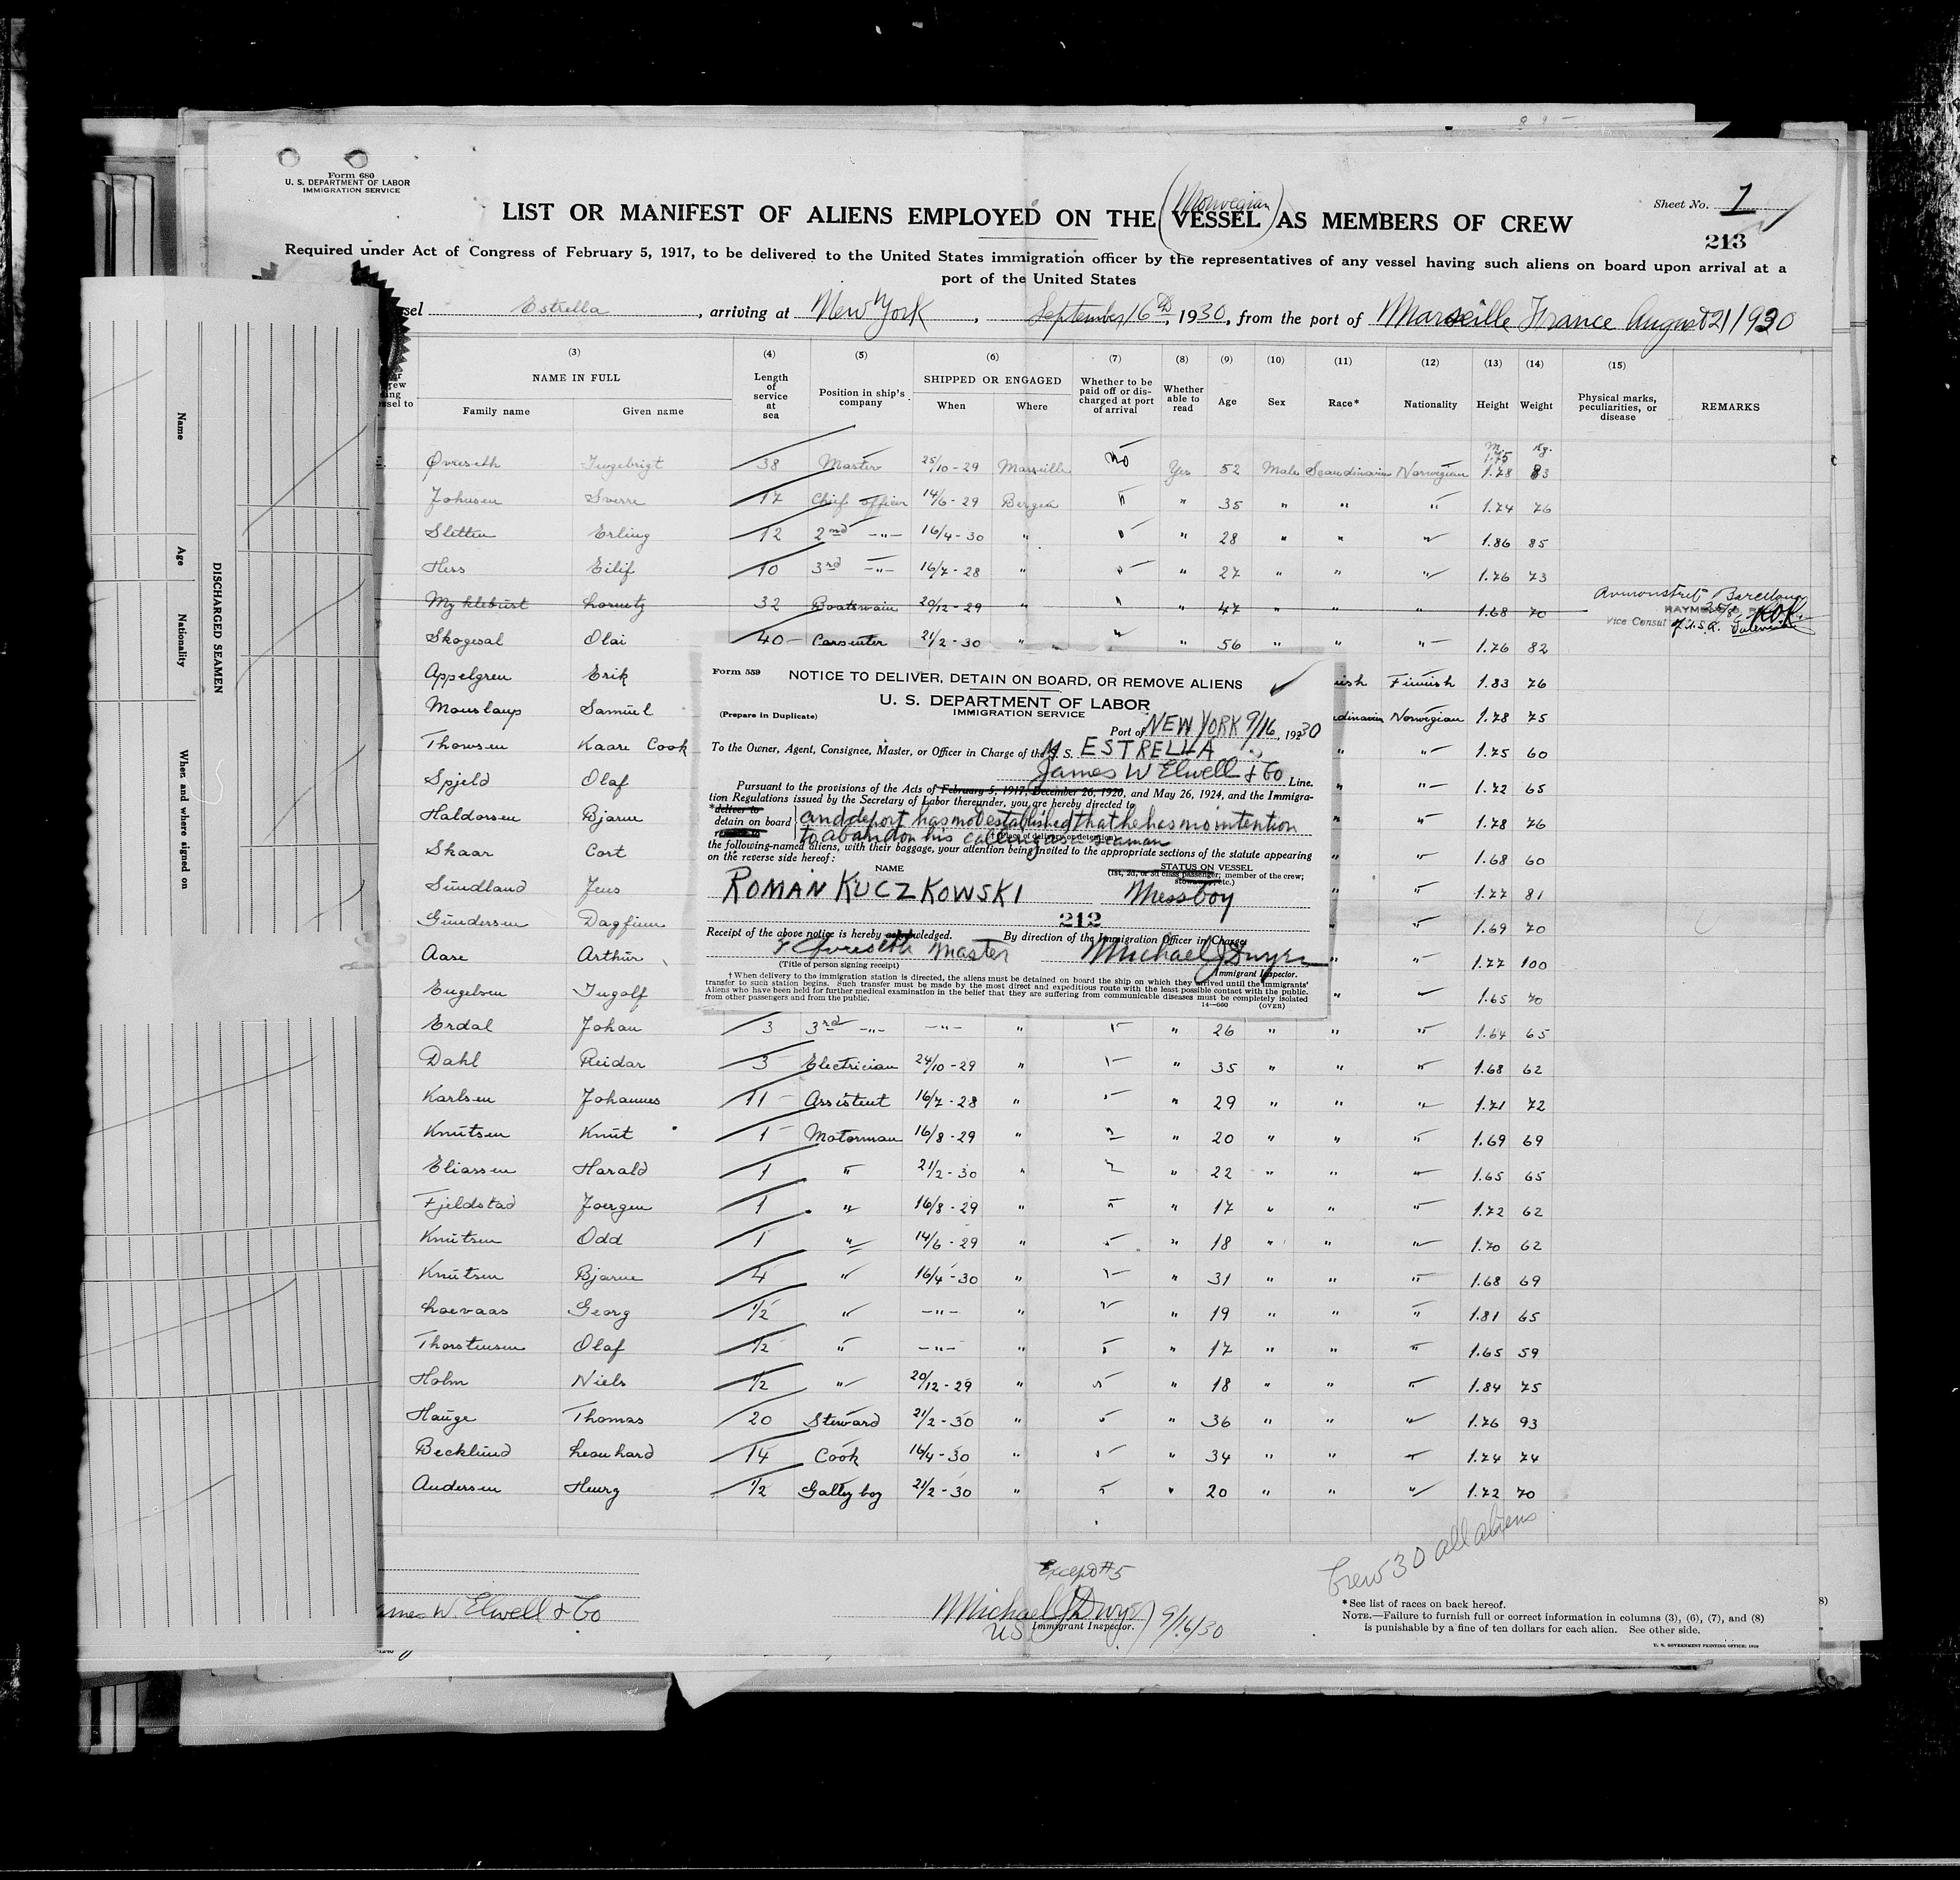 Form 680
U. S. DEPARTMENT OF LABOR
IMMIGRATION SERVICE
Sheet No. 1
213
(Norwegian)
LIST OR MANIFEST OF ALIENS EMPLOYED ON THE VESSEL AS MEMBERS OF CREW
Required under Act of Congress of February 5, 1917, to be delivered to the United States immigration officer by the representatives of any vessel having such aliens on board upon arrival at a
port of the United States
sel Estrella, arriving at New York, September 16th, 1930, from the port of Marseille France August 21/1930
(3) (4) (5) (6) (7) (8) (9) (10) (11) (12) (13) (14) (15)
NAME IN FULL
Family name Given name
Length of service at sea
Position in ship's company
SHIPPED OR ENGAGED
When Where
Whether to be paid off or discharged at port of arrival
Whether able to read
Age Sex Race* Nationality Height Weight
Physical marks, peculiarities, or disease
REMARKS
m 1.75 kg.
Øvreseth Ingebrigt 38 Master 25/10-29 Marseille no Yes 52 Male Scandinavian Norwegian 1.78 83
Johnsen Sverre 17 Chief officer 14/6-29 Bergen " " 35 " " " 1.74 76
Sletten Erling 12 2nd -"- 16/4-30 " " " 28 " " " 1.86 85
Hess Eilif 10 3rd -"- 16/7-28 " " " 27 " " " 1.76 73
Myklebust Lorentz 32 Boatswain 20/12-29 " " " 47 " " " 1.68 70 Avmonstret Barcelona
Vice Consul
Skogesal Olai 40 Carpenter 21/2-30 " " " 56 " " " 1.76 82
Appelgren Erik ish Finnish 1.83 76
Monslaup Samuel dinavian Norwegian 1.78 75
Thowsen Kaare Cook " " 1.75 60
Spjeld Olaf " " 1.72 65
Haldorsen Bjarne " " 1.78 76
Skaar Cort " " 1.68 60
Sundland Jens " " 1.77 81
Gundersen Dagfinn " " 1.69 70
Aase Arthur " " 1.77 100
Engelsen Ingolf " " 1.65 70
Erdal Johan 3 3rd -"- -"- " " " 26 " " " 1.64 65
Dahl Reidar 3 Electrician 24/10-29 " " " 35 " " " 1.68 62
Karlsen Johannes 11 Assistent 16/7-28 " " " 29 " " " 1.71 72
Knutsen Knut 1 Motorman 16/8-29 " " " 20 " " " 1.69 69
Eliassen Harald 1 " 21/2-30 " " " 22 " " " 1.65 65
Fjeldstad Joergen 1 " 16/8-29 " " " 17 " " " 1.72 62
Knutsen Odd 1 " 14/6-29 " " " 18 " " " 1.70 62
Knutsen Bjarne 4 " 16/4-30 " " " 31 " " " 1.68 69
Loevaas Georg 1/2 " -"- " " " 19 " " " 1.81 65
Thorstensen Olaf 1/2 " -"- " " " 17 " " " 1.65 59
Holm Niels 1/2 " 20/12-29 " " " 18 " " " 1.84 75
Hauge Thomas 20 Steward 21/2-30 " " " 36 " " " 1.76 93
Becklund Leonhard 14 Cook 16/4-30 " " " 34 " " " 1.74 74
Andersen Henry 1/2 Galley boy 21/2-30 " " " 20 " " " 1.72 70
Form 559
NOTICE TO DELIVER, DETAIN ON BOARD, OR REMOVE ALIENS
U. S. DEPARTMENT OF LABOR
IMMIGRATION SERVICE
(Prepare in Duplicate)
Port of NEW YORK 9/16, 1930
To the Owner, Agent, Consignee, Master, or Officer in Charge of the M. S. ESTRELLA
James W Elwell & Co Line.
Pursuant to the provisions of the Acts of February 5, 1917, December 26, 1920, and May 26, 1924, and the Immigra-
tion Regulations issued by the Secretary of Labor thereunder, you are hereby directed to
*deliver to
detain on board and deport has not established that he has no intention
to abandon his calling as a seaman
(†Place of delivery or detention)
the following-named aliens, with their baggage, your attention being invited to the appropriate sections of the statute appearing
on the reverse side hereof:
NAME STATUS ON VESSEL
(1st, 2d, or 3d class passenger; member of the crew;
stowaway, etc.)
ROMAN KUCZKOWSKI Messboy
212
Receipt of the above notice is hereby acknowledged. By direction of the Immigration Officer in Charge:
I Øvreseth Master Michael J Dwyer
(Title of person signing receipt) Immigrant Inspector.
† When delivery to the immigration station is directed, the aliens must be detained on board the ship on which they arrived until the immigrants'
transfer to such station begins. Such transfer must be made by the most direct and expeditious route with the least possible contact with the public.
Aliens who have been held for further medical examination in the belief that they are suffering from communicable diseases must be completely isolated
from other passengers and from the public.
14—660 (OVER)
DISCHARGED SEAMEN
Name
Age
Nationality
When and where signed on
Except #5
Crew 30 all aliens
ames W. Elwell & Co
Michael J Dwyer 9/16/30
US Immigrant Inspector.
*See list of races on back hereof.
NOTE.—Failure to furnish full or correct information in columns (3), (6), (7), and (8)
is punishable by a fine of ten dollars for each alien. See other side.
U. S. GOVERNMENT PRINTING OFFICE: 1929